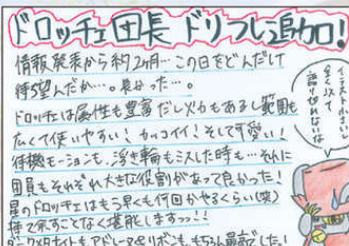 ドロッチェ団長 ドリフレ追加!
情報発表から約2ヵ月…この日をどんだけ
待ち望んだか…。長かった…。
ドロッチェは属性も豊富だし火力もあるし範囲も
広くて使いやすい!カッコイイ!そして可愛い!
待機モーションも、浮き輪もミスした時も…それに
団員もそれぞれ大きな役割があって良かった!
星のドロッチェはもう早くも何回かやるくらい(笑)
捨て余すことなく堪能しますっっ!!
ダークメタナイトもアドレーヌ&リボンも、もちろん最高でした!
イラスト小さいし
全く以て
語り切れないな